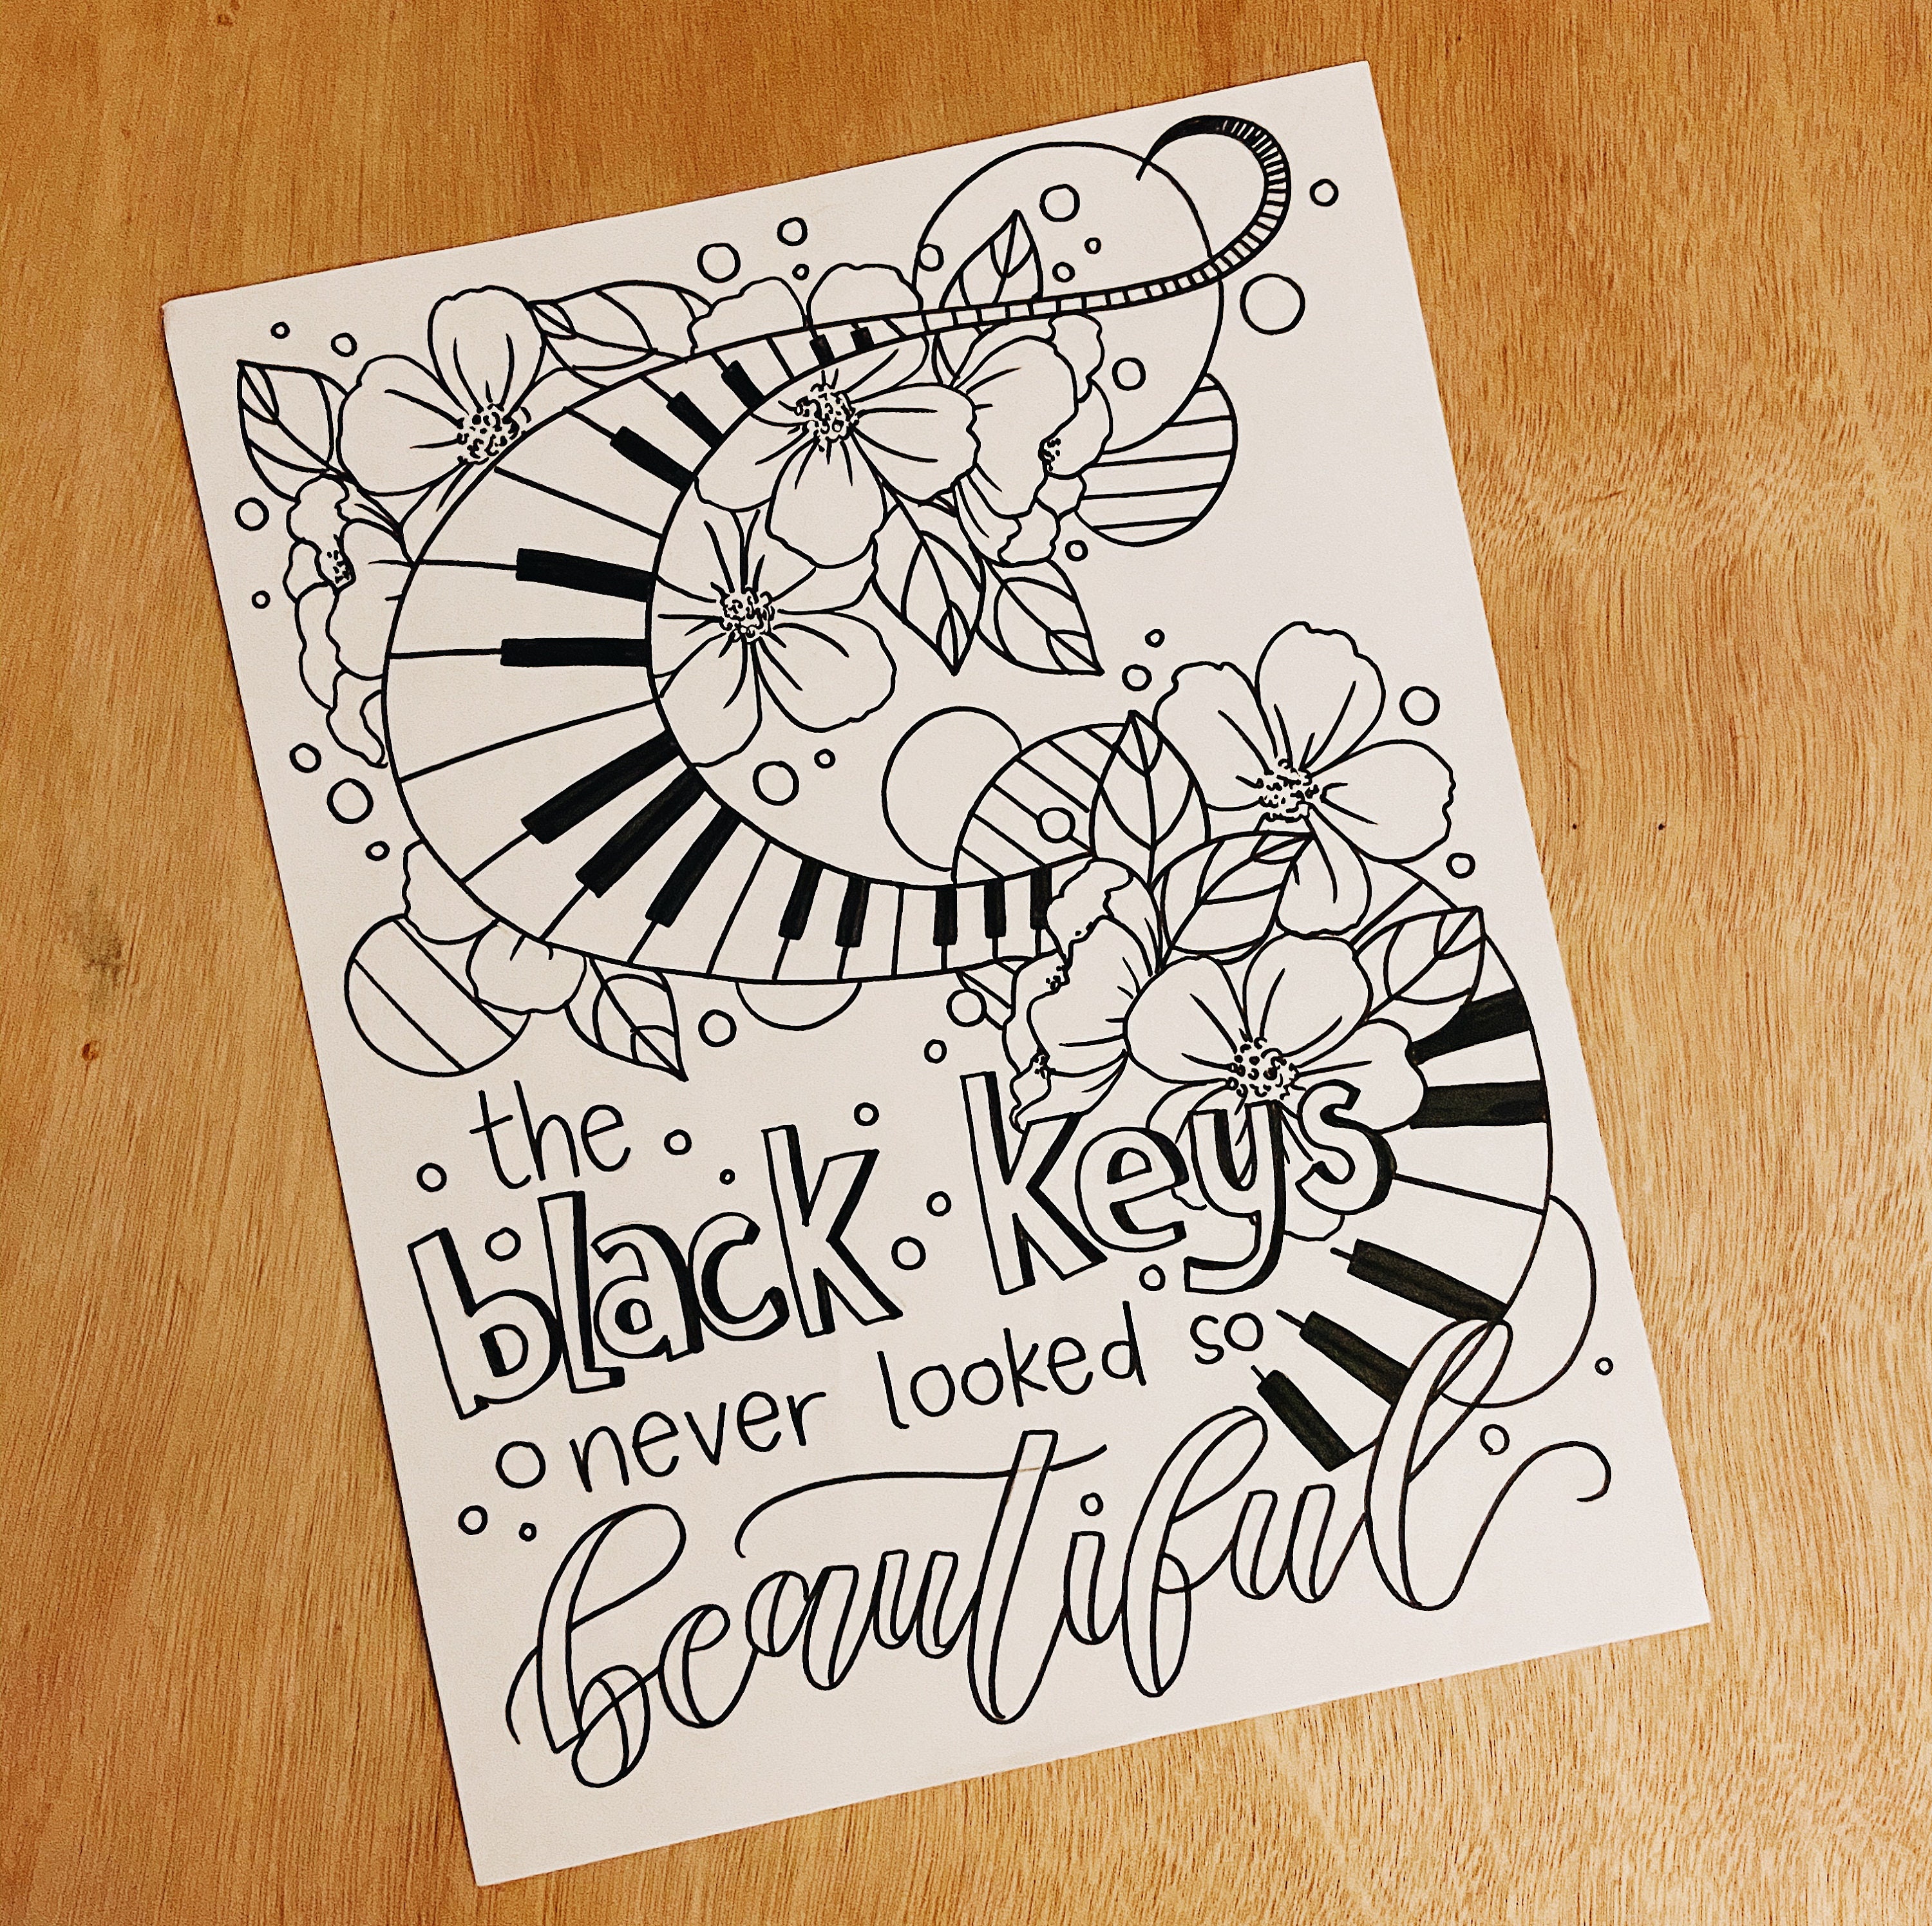 the
black keys
never looked so
beautiful